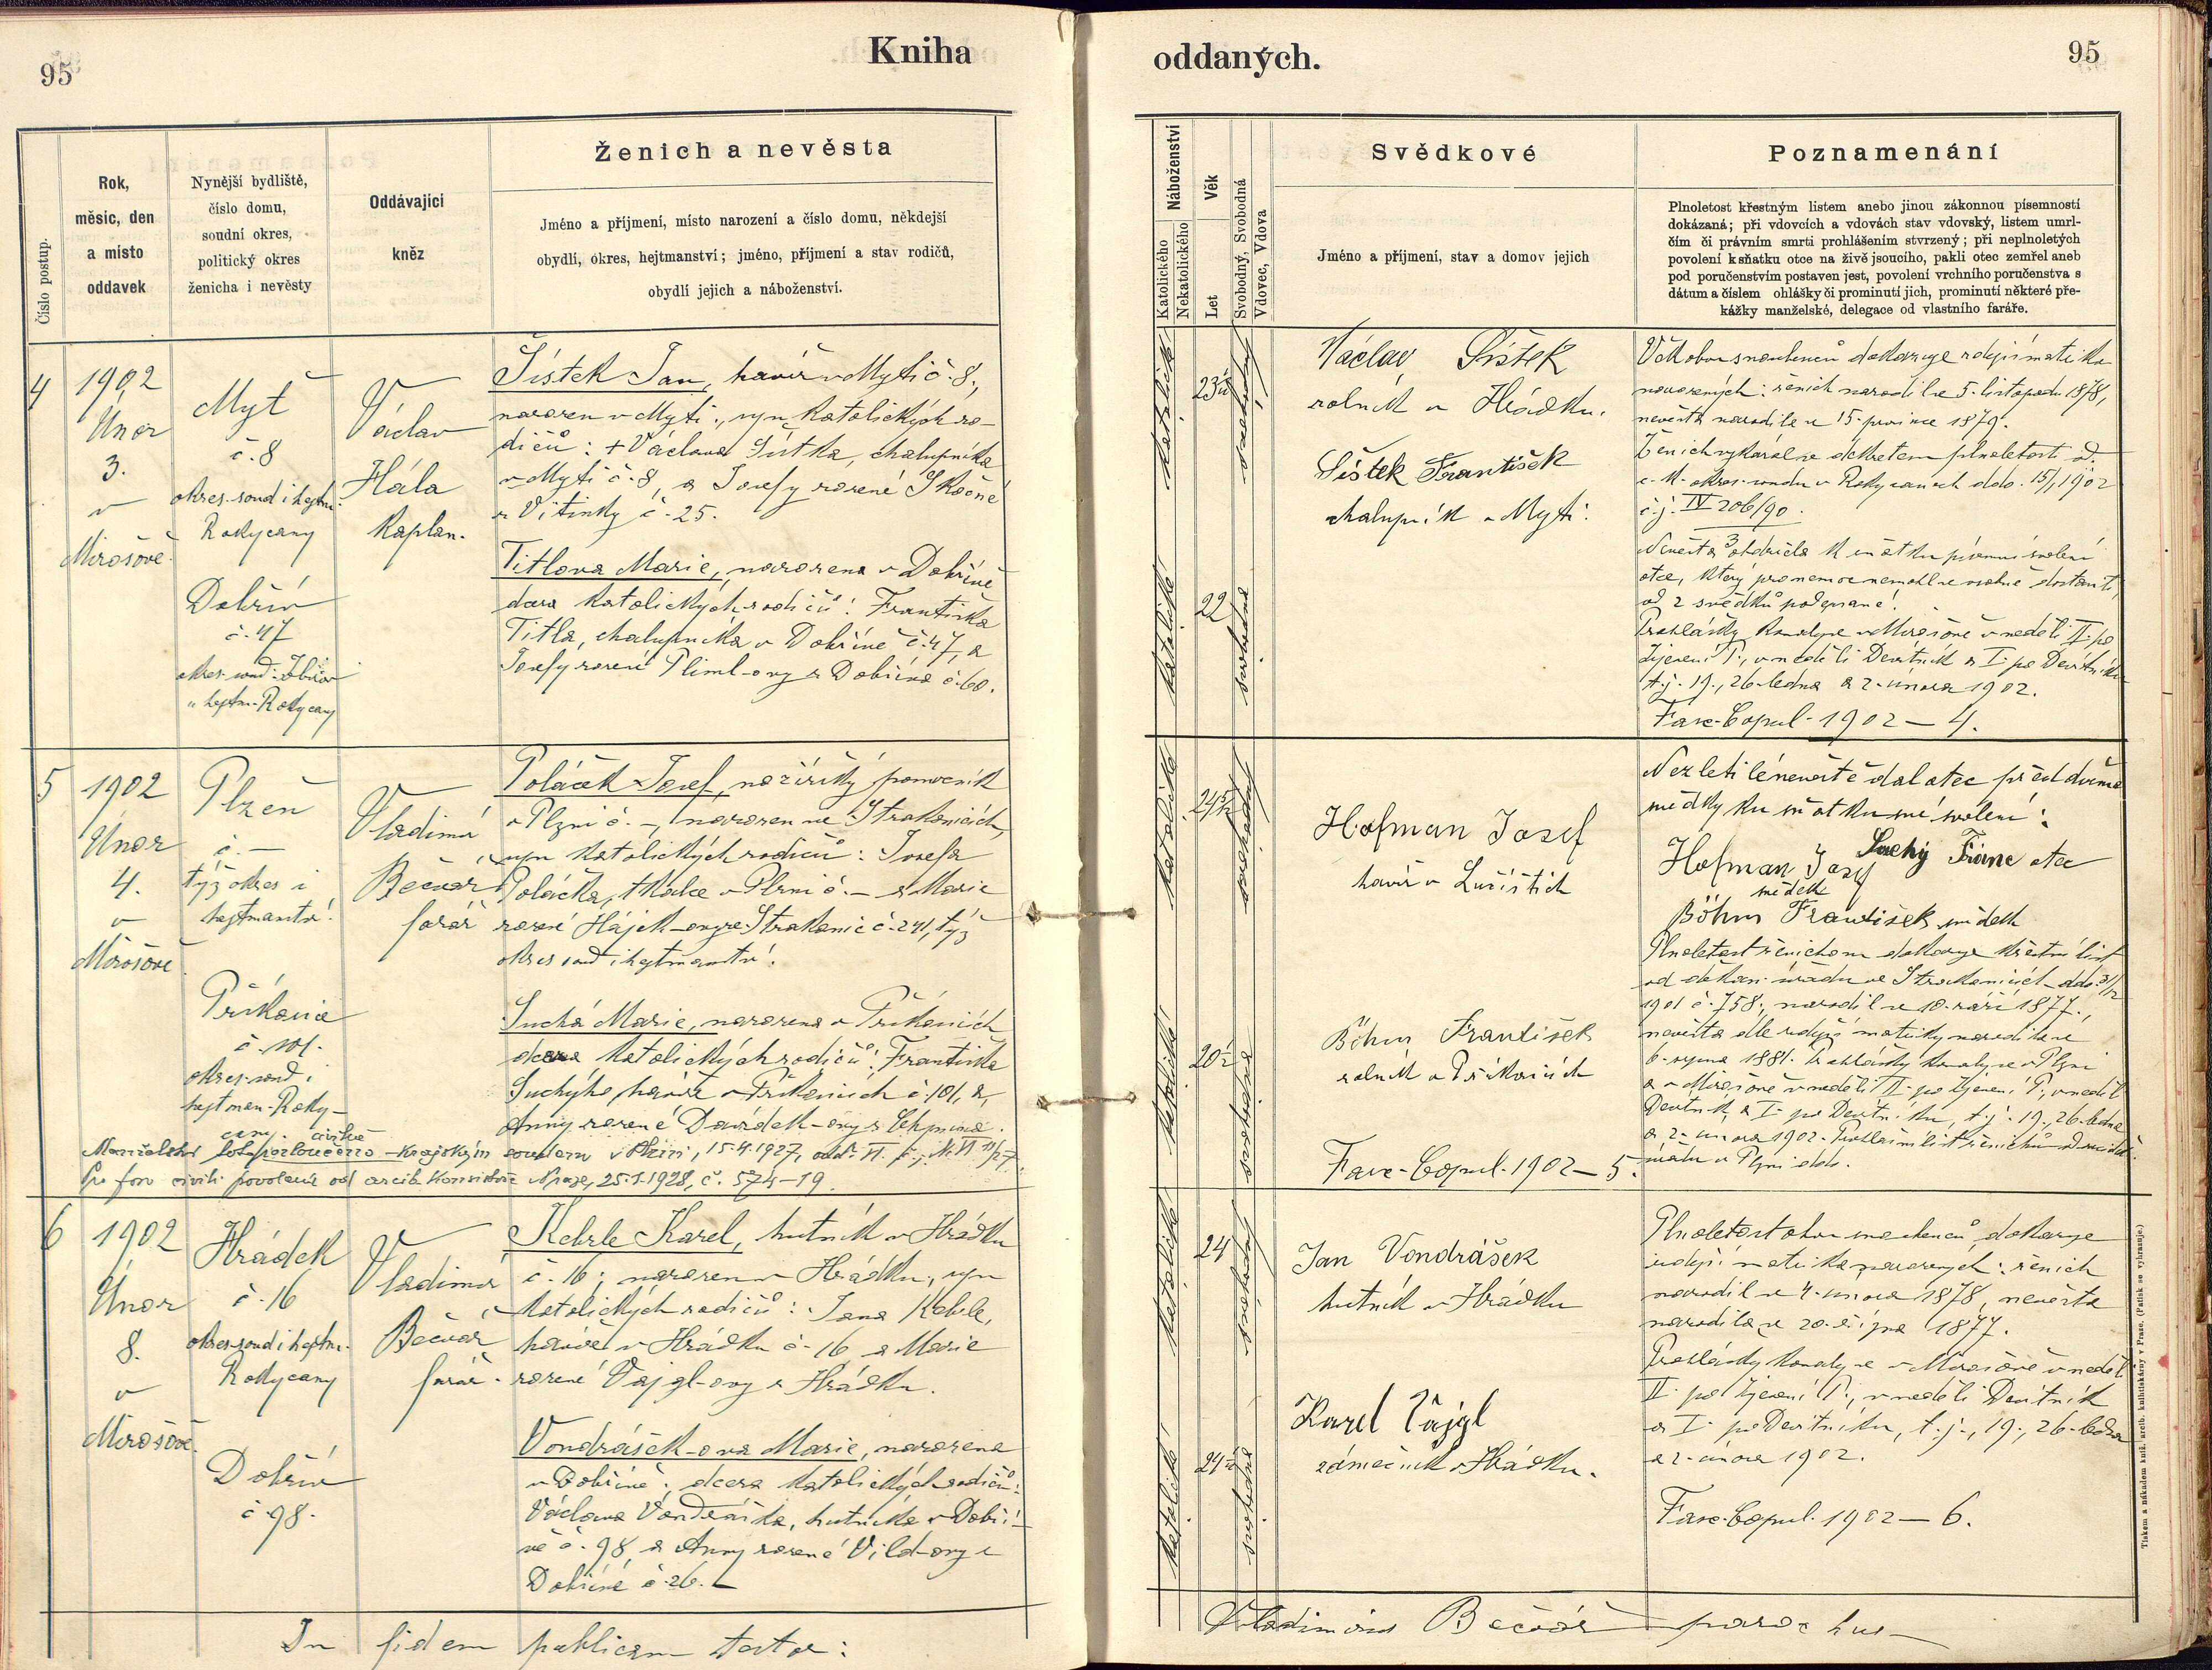 95
Kniha
Číslo postup.
Rok,
měsíc, den
a místo
oddavek
Nynější bydliště,
číslo domu,
soudní okres,
politický okres
ženicha i nevěsty
Oddávající
kněz
Ženich a nevěsta
Jméno a příjmení, místo narození a číslo domu, někdejší
obydlí, okres, hejtmanství; jméno, příjmení a stav rodičů,
obydlí jejich a náboženství.
4
1902
Únor
3.
v
Mirošově.
Myť
č. 8
okres. soud i hejtm.
Rokycany
Dobřív
č. 47
okres. soud. Zbiroh
" hejtm. Rokycany
Václav
Hála
kaplan.
Šístek Jan, havíř v Myti č. 8.,
narozen v Myti, syn katolických ro-
dičů: + Václava Šístka, chalupníka
v Myti č. 8, a Josefy rozené
z Vitinky č. 25.
Titlova Marie, narozena v Dobřívě
dcera katolických rodičů: Františka
Titla, chalupníka v Dobřívě č. 47, a
Josefy rozené Pliml-ovy z Dobříva č. 60.
5
1902
Únor
4.
v
Mirošově
Plzeň
č. —
týž okres i
hejtmanství.
Příkosice
č. 101.
okres. soud i
hejtman. Roky-
cany.
Vladimír
Bečvář
farář
Poláček Josef, nožířský pomocník
v Plzni č. —, narozen ve Strakonicích,
syn katolických rodičů: Josefa
Poláčka, tkalce v Plzni č. — a Marie
rozené Hájek-ovy ze Strakonic č. 241, týž
okres soud i hejtmanství.
Suchá Marie, narozena v Příkosicích
dcera katolických rodičů: Františka
Suchýho, havíře v Příkosicích č. 101, a
Anny rozené
Manželství bylo civilně rozloučeno krajským soudem v Plzni, 15.4.1927, odd. VI.
Pro foro civili povolené od arcib. konsistoře v Praze, 25.1.1928, č. 574-19.
6
1902
Únor
8.
v
Mirošově.
Hrádek
č. 16
okres. soud i hejtm.
Rokycany
Dobřív
č. 98.
Vladimír
Bečvář
farář.
Kebrle Karel, hutník v Hrádku
č. 16; narozen v Hrádku, syn
katolických rodičů: Jana Kebrle,
havíře v Hrádku č. 16 a Marie
rozené Vajgl-ovy z Hrádku.
Vondrášek-ova Marie, narozena
v Dobřívě; dcera katolických rodičů:
Václava Vondráška, hutníka v Dobří-
vě č. 98, a Anny rozené Vild-ovy z
Dobříva č. 26.
In fidem publicam testor:
oddaných.
95
Náboženství
Katolického
Nekatolického
Věk
Let
Svobodný, Svobodná
Vdovec, Vdova
Svědkové
Jméno a příjmení, stav a domov jejich
Poznamenání
Plnoletost křestným listem anebo jinou zákonnou písemností
dokázaná; při vdovcích a vdovách stav vdovský, listem umrl-
čím či právním smrti prohlášením stvrzený; při neplnoletých
povolení k sňatku otce na živě jsoucího, pakli otec zemřel aneb
pod poručenstvím postaven jest, povolení vrchního poručenstva s
dátum a číslem ohlášky či prominutí jich, prominutí některé pře-
kážky manželské, delegace od vlastního faráře.
katolické
23
svobodný
katolické
22
svobodná
Václav Šístek
rolník v Hrádku.
Šístek František
chalupník v Myti.
Věk obou snoubenců dokazuje zdejší matrika
narozených: ženich narodil se 5. listopadu 1878,
nevěsta narodila se 15. prosince 1879.
Ženich vykázal se dekretem plnoletosti od
c. k. okres. soudu v Rokycanech ddo. 15/1 1902
č. j. IV 206/90.
Nevěsta obdržela k sňatku písemné svolení
otce, který pro nemoc nemohl se osobně dostaviti,
od 2 svědků podepsané.
Prohlášky konaly se v Mirošově v neděli II. po
Zjevení P., v neděli Devítník a I. po Devítníku
t. j. 19., 26. ledna a 2. února 1902.
Fasc. Copul. 1902 — 4.
katolické
24
svobodný
katolické
20
svobodná
Hofman Josef
havíř v
Böhm František
rolník v Příkosicích
Fasc. Copul. 1902 — 5.
Nezletilé nevěstě dal otec před dvěma
svědky ku sňatku své svolení:
Suchý Franc otec
Hofman Josef
svědek
Böhm František svědek
Plnoletost ženichovu dokazuje křestní list
od děkan. úřadu ve Strakonicích ddo.
1901 č. 758; narodil se 10. září 1877.,
nevěsta dle zdejší matriky narodila se
6. srpna 1881. Prohlášky konaly se v Plzni
a v Mirošově v neděli II. po Zjevení P., v neděli
Devítník, a I. po Devítníku, t. j. 19., 26. ledna
a 2. února 1902.
úřadu v Plzni ddo.
katolické
24
svobodný
katolické
24
svobodná
Jan Vondrášek
hutník v Hrádku
Karel Vajgl
zámečník v Hrádku.
Plnoletost obou snoubenců dokazuje
zdejší matrika narozených: ženich
narodil se 4. února 1878, nevěsta
narodila se 20. října 1877.
Prohlášky konaly se v Mirošově v neděli
II. po Zjevení P., v neděli Devítník
a I. po Devítníku, t. j., 19., 26. ledna
a 2. února 1902.
Fasc. Copul. 1902 — 6.
Tiskem a nákladem kníž. arcib. knihtiskárny v Praze. (Patisk se vyhrazuje.)
Vladimirus Bečvář parochus